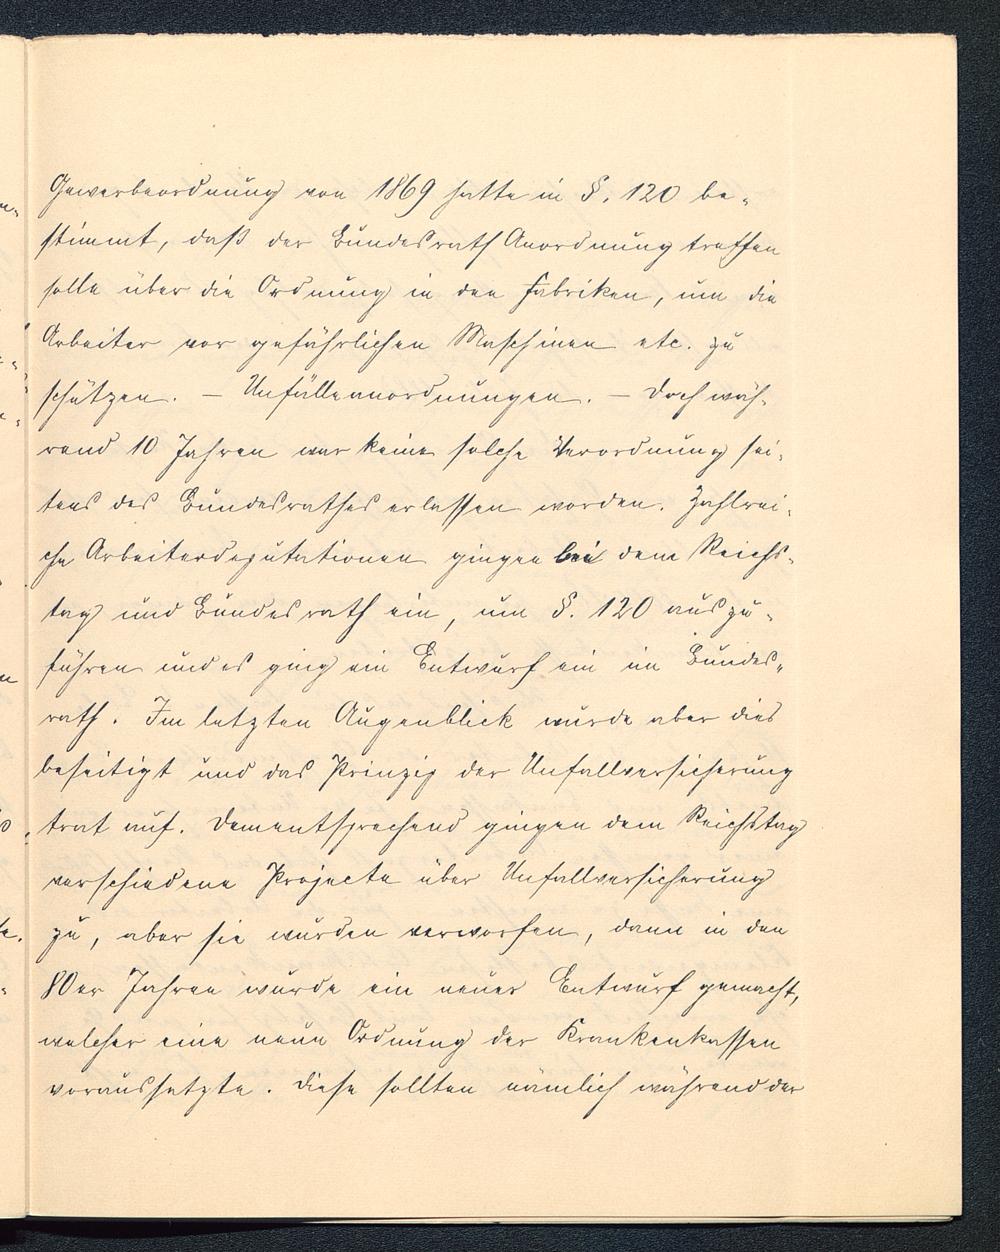 Gewerbeordnung von 1869 hatte in §. 120 be-
stimmt, daß der Bundesrath Anordnung treffen
solle über die Ordnung in den Fabriken, um die
Arbeiter vor gefährlichen Maschinen etc. zu
schützen. – Unfälleanordnungen. – Doch wäh-
rend 10 Jahren war keine solche Verordnung sei-
tens des Bundesrathes erlassen worden. Zahlrei-
che Arbeiterdeputationen gingen bei dem Reichs-
tag und Bundesrath ein, um §. 120 auszu-
führen und es ging ein Entwurf ein im Bundes-
rath. Im letzten Augenblick wurde aber dies
beseitigt und das Prinzip der Unfallversicherung
trat auf. Dementsprechend gingen dem Reichstag
verschiedene Projecte über Unfallversicherung
zu, aber sie wurden verworfen, dann in den
80er Jahren wurde ein neuer Entwurf gemacht,
welcher eine neue Ordnung der Krankenkassen
voraussetzte. Diese sollten nämlich während der